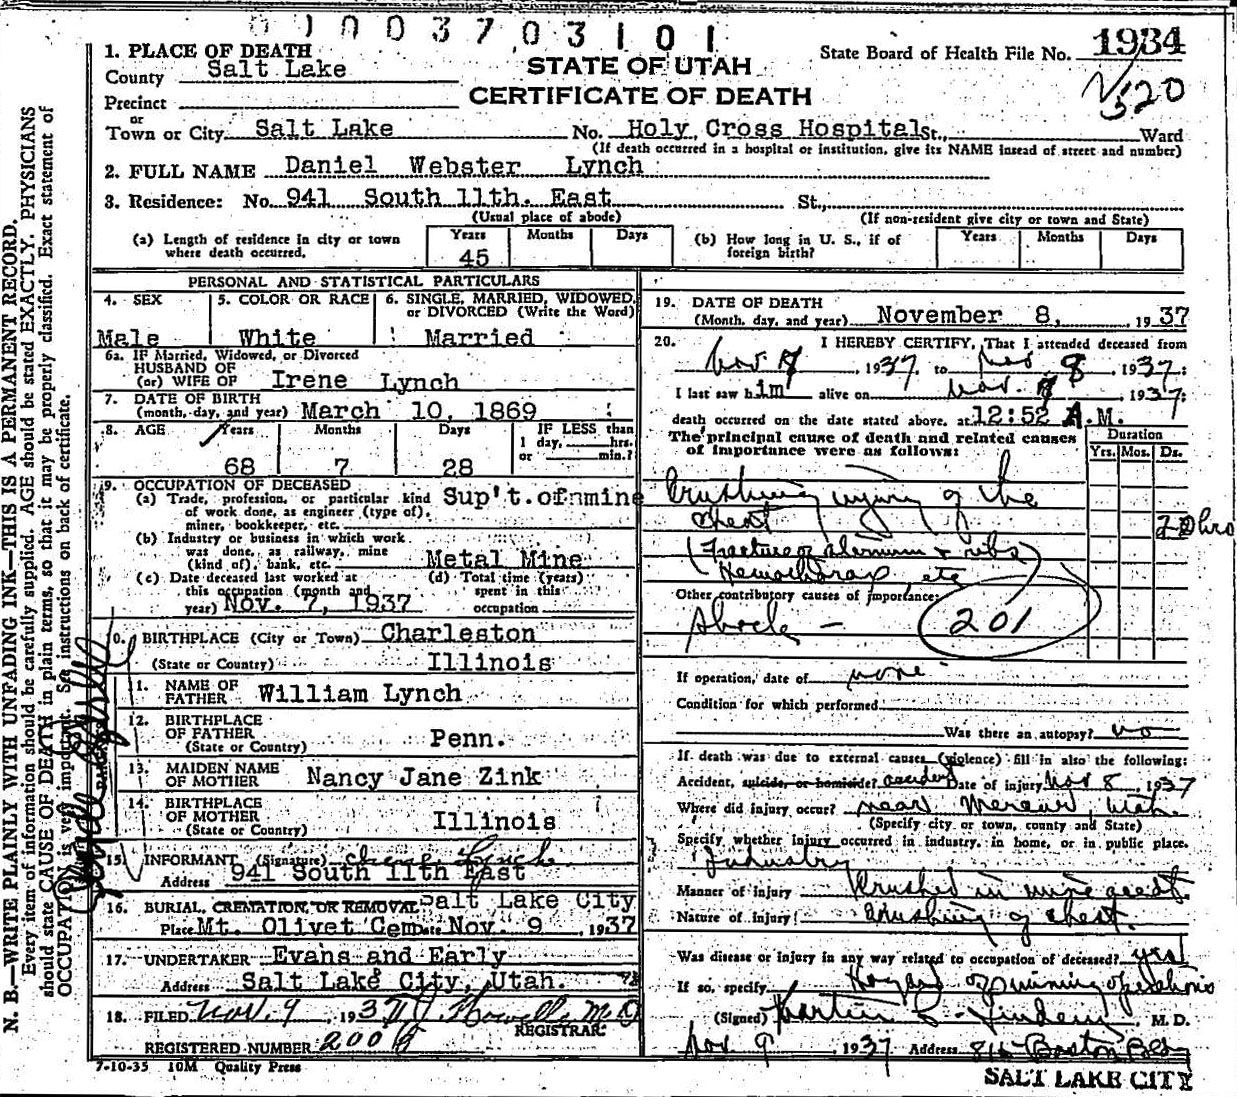 0100370 3101
1. PLACE OF DEATH
County Salt Lake
STATE OF UTAH
State Board of Health File No. 1934
CERTIFICATE OF DEATH
520
Precinct
or
Town or City Salt Lake No. Holy Cross Hospital St., Ward
(If death occurred in a hospital or institution, give its NAME insead of street and number)
2. FULL NAME Daniel Webster Lynch
3. Residence: No. 941 South 11th. East St.,
(Usual place of abode) (If non-resident give city or town and State)
(a) Length of residence in city or town where death occurred. Years 45 Months Days
(b) How long in U. S., if of foreign birth? Years Months Days
PERSONAL AND STATISTICAL PARTICULARS
4. SEX Male
5. COLOR OR RACE White
6. SINGLE, MARRIED, WIDOWED, or DIVORCED (Write the Word) Married
6a. IF Married, Widowed, or Divorced
HUSBAND OF
(or) WIFE OF Irene Lynch
7. DATE OF BIRTH
(month, day, and year) March 10, 1869
8. AGE Years 68 Months 7 Days 28
IF LESS than 1 day, hrs. or min.?
9. OCCUPATION OF DECEASED
(a) Trade, profession, or particular kind of work done, as engineer (type of), miner, bookkeeper, etc. Sup't. of mine
(b) Industry or business in which work was done, as railway, mine (kind of), bank, etc. Metal Mine
(c) Date deceased last worked at this occupation (month and year) Nov. 7, 1937
(d) Total time (years) spent in this occupation
0. BIRTHPLACE (City or Town) Charleston
(State or Country) Illinois
1. NAME OF FATHER William Lynch
12. BIRTHPLACE OF FATHER (State or Country) Penn.
13. MAIDEN NAME OF MOTHER Nancy Jane Zink
14. BIRTHPLACE OF MOTHER (State or Country) Illinois
15. INFORMANT (Signature) Irene Lynch
Address 941 South 11th East
16. BURIAL, CREMATION, OR REMOVAL Salt Lake City
Place Mt. Olivet Cem Date Nov. 9, 1937
17. UNDERTAKER Evans and Early
Address Salt Lake City, Utah.
18. FILED Nov. 9, 1937 Howells M D
REGISTRAR
REGISTERED NUMBER 2005
7-10-35 10M Quality Press
19. DATE OF DEATH
(Month, day, and year) November 8, 1937
20. I HEREBY CERTIFY, That I attended deceased from
Nov 8, 1937, to Nov. 8, 1937;
I last saw him alive on Nov. 8, 1937;
death occurred on the date stated above, at 12:52 A.M.
The principal cause of death and related causes of importance were as follows:
Duration
Yrs. Mos. Ds.
Crushing injury of the
chest
hrs
(Fracture of sternum & ribs)
Hemothorax, etc
Other contributory causes of importance:
Shock - 201
If operation, date of none
Condition for which performed
Was there an autopsy? no
If death was due to external causes (violence) fill in also the following:
Accident, suicide, or homicide? accident Date of injury Nov 8 1937
Where did injury occur? near Mercur, Utah
(Specify city or town, county and State)
Specify whether injury occurred in industry, in home, or in public place.
Industry
Manner of injury Crushed in mine accdt.
Nature of injury Crushing of chest.
Was disease or injury in any way related to occupation of deceased? yes
If so, specify Hazard of mining operations
(Signed) Martin C. Lindem, M. D.
Nov. 9, 1937 Address 816 Boston Bldg
SALT LAKE CITY
N. B.—WRITE PLAINLY WITH UNFADING INK—THIS IS A PERMANENT RECORD.
Every item of information should be carefully supplied. AGE should be stated EXACTLY. PHYSICIANS
should state CAUSE OF DEATH in plain terms, so that it may be properly classified. Exact statement of
OCCUPATION is very important. See instructions on back of certificate.